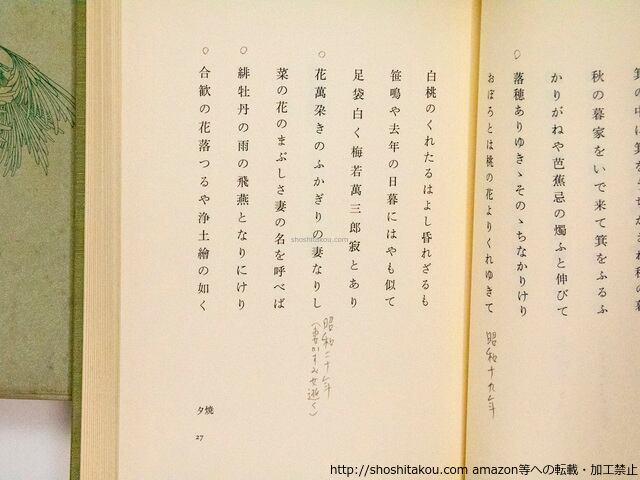 箕の中に箕を
秋の暮家をいで来て箕をふるふ
かりがねや芭蕉忌の燭ふと伸びて
○ 落穂ありゆきゝそのゝちなかりけり
おぼろとは桃の花よりくれゆきて
昭和十九年
白桃のくれたるはよし昏れざるも
笹鳴や去年の日暮にはやも似て
足袋白く梅若萬三郎寂とあり
○ 花萬朶きのふかぎりの妻なりし
昭和二十年
(妻かすみ逝く)
菜の花のまぶしさ妻の名を呼べば
○ 緋牡丹の雨の飛燕となりにけり
○ 合歓の花落つるや浄土繪の如く
夕焼
27
shoshitakou.com
http://shoshitakou.com amazon等への転載・加工禁止